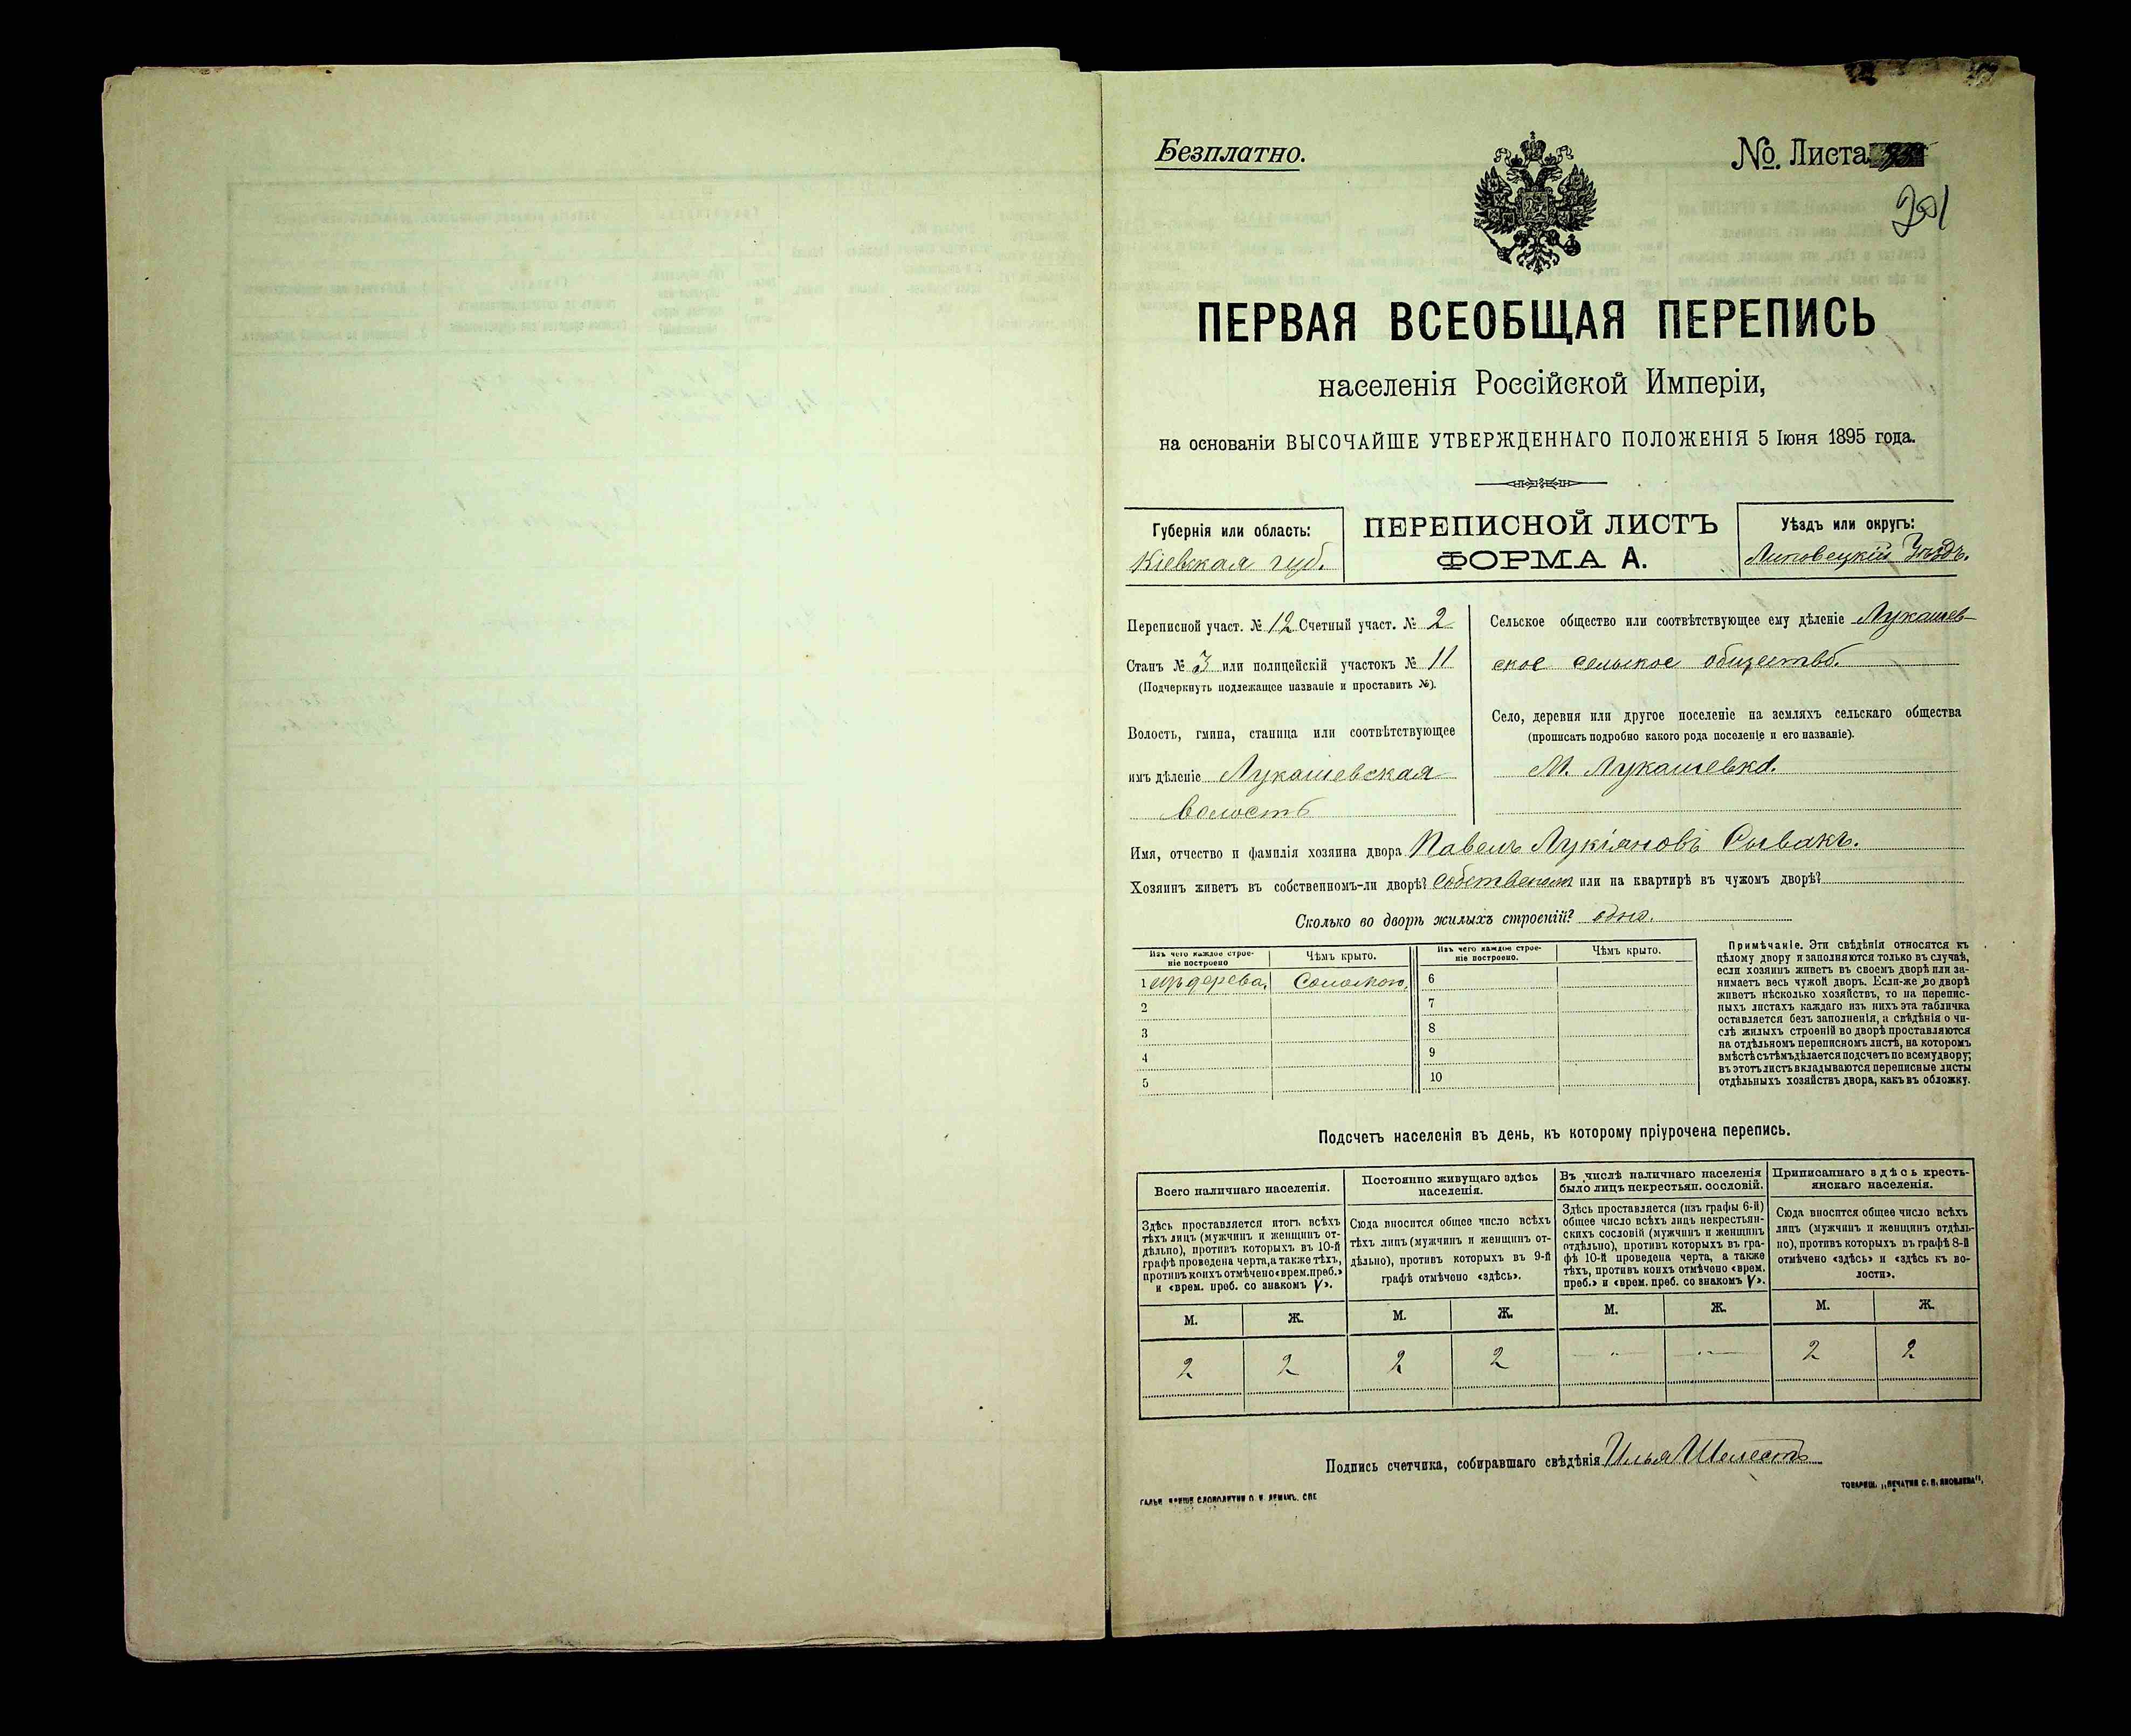 Безплатно.
№. Листа
201
ПЕРВАЯ ВСЕОБЩАЯ ПЕРЕПИСЬ
населенія Россійской Имперіи,
на основаніи ВЫСОЧАЙШЕ УТВЕРЖДЕННАГО ПОЛОЖЕНІЯ 5 Іюня 1895 года.
Губернія или область:
Кіевская губ.
ПЕРЕПИСНОЙ ЛИСТЪ
ФОРМА А.
Уѣздъ или округъ:
Липовецкій Уѣздъ.
Переписной участ. № 12 Счетный участ. № 2
Станъ № 3 или полицейскій участокъ № 11
(Подчеркнуть подлежащее названіе и проставить №).
Волость, гмина, станица или соотвѣтствующее
имъ дѣленіе Лукашевская
волость
Сельское общество или соотвѣтствующее ему дѣленіе Лукашев-
ское сельское общество.
Село, деревня или другое поселеніе на земляхъ сельскаго общества
(прописать подробно какого рода поселеніе и его названіе).
М. Лукашевка.
Имя, отчество и фамилія хозяина двора Павелъ Лукіяновъ Сывакъ.
Хозяинъ живетъ въ собственномъ-ли дворѣ? собственомъ или на квартирѣ въ чужомъ дворѣ?
Сколько во дворѣ жилыхъ строеній? одно.
Изъ чего каждое строе-
ніе построено
Чѣмъ крыто.
Изъ чего каждое строе-
ніе построено.
Чѣмъ крыто.
1 изъ дерева, Соломою,
2
3
4
5
6
7
8
9
10
Примѣчаніе. Эти свѣдѣнія относятся къ
цѣлому двору и заполняются только въ случаѣ,
если хозяинъ живетъ въ своемъ дворѣ или за-
нимаетъ весь чужой дворъ. Если-же во дворѣ
живетъ нѣсколько хозяйствъ, то на перепис-
ныхъ листахъ каждаго изъ нихъ эта табличка
оставляется безъ заполненія, а свѣдѣнія о чи-
слѣ жилыхъ строеній во дворѣ проставляются
на отдѣльномъ переписномъ листѣ, на которомъ
вмѣстѣ съ тѣмъ дѣлается подсчетъ по всему двору;
въ этотъ листъ вкладываются переписные листы
отдѣльныхъ хозяйствъ двора, какъ въ обложку.
Подсчетъ населенія въ день, къ которому пріурочена перепись.
Всего наличнаго населенія.
Здѣсь проставляется итогъ всѣхъ
тѣхъ лицъ (мужчинъ и женщинъ от-
дѣльно), противъ которыхъ въ 10-й
графѣ проведена черта, а также тѣхъ,
противъ коихъ отмѣчено «врем. преб.»
и «врем. преб. со знакомъ V».
Постоянно живущаго здѣсь
населенія.
Сюда вносится общее число всѣхъ
тѣхъ лицъ (мужчинъ и женщинъ от-
дѣльно), противъ которыхъ въ 9-й
графѣ отмѣчено «здѣсь».
Въ числѣ наличнаго населенія
было лицъ некрестьян. сословій.
Здѣсь проставляется (изъ графы 6-й)
общее число всѣхъ лицъ некрестьян-
скихъ сословій (мужчинъ и женщинъ
отдѣльно), противъ которыхъ въ гра-
фѣ 10-й проведена черта, а также
тѣхъ, противъ коихъ отмѣчено «врем.
преб.» и «врем. преб. со знакомъ V».
Приписаннаго здѣсь кресть-
янскаго населенія.
Сюда вносится общее число всѣхъ
лицъ (мужчинъ и женщинъ отдѣль-
но), противъ которыхъ въ графѣ 8-й
отмѣчено «здѣсь» и «здѣсь къ во-
лости».
М. Ж. М. Ж. М. Ж. М. Ж.
2 2 2 2 — " — — " — 2 2
Подпись счетчика, собиравшаго свѣдѣнія Илья Шелестъ
СЛОВОЛИТНИ О. И. ЛЕМАНЪ. СПБ.
ТОВАРИЩ. „ПЕЧАТНЯ С. П. ЯКОВЛЕВА".